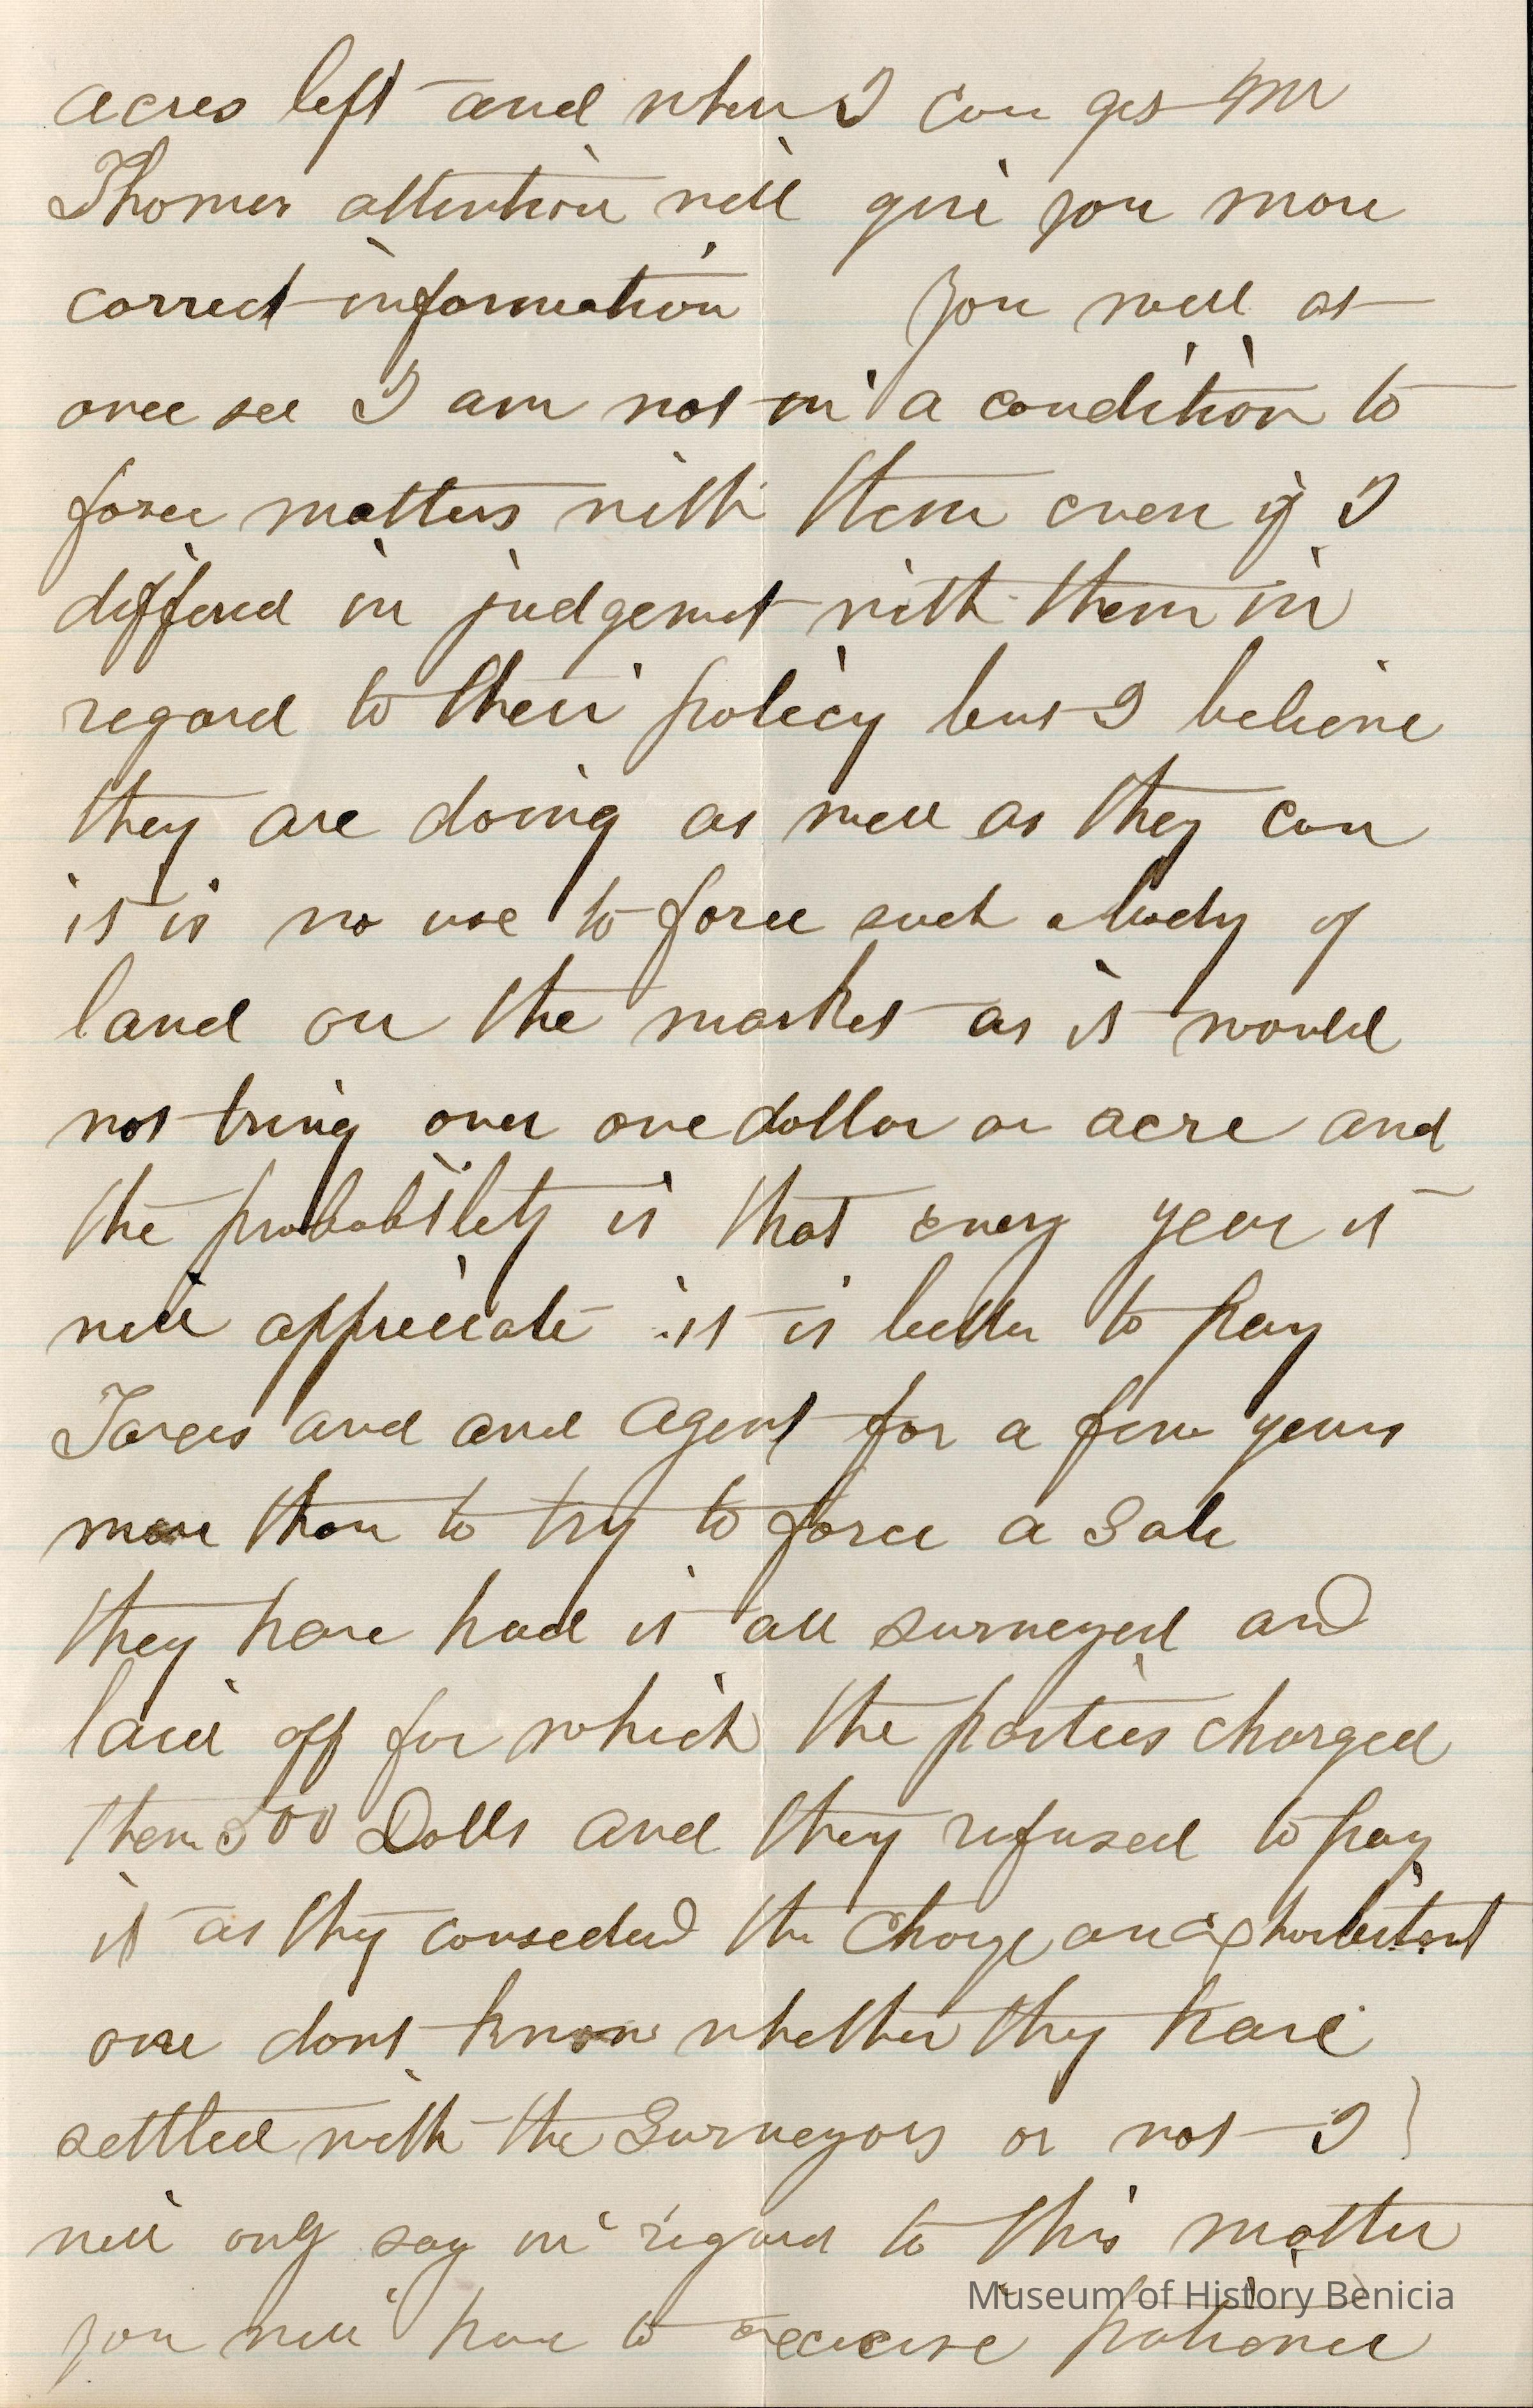 acres left and when I can get Mr
Thomas attention will give you more
correct information you will at
once see I am not in a condition to
force matters with them even if I
differed in judgemet with them in
regard to their policy but I believe
they are doing as well as they can
it is no use to force such a body of
land on the market as it would
not bring over one dollar an acre and
the probability is that every year it
will appreciate it is better to pay
Taxes and and Agent for a few years
more than to try to force a Sale
they have had it all surveyed and
laid off for which the parties charged
them 500 Dolls and they refused to pay
it as they consedered the Charge an exhorbitant
one dont know whether they have
settled with the Surveyors or not I
will only say in regard to this matter
you will have to excercise patience
Museum of History Benicia